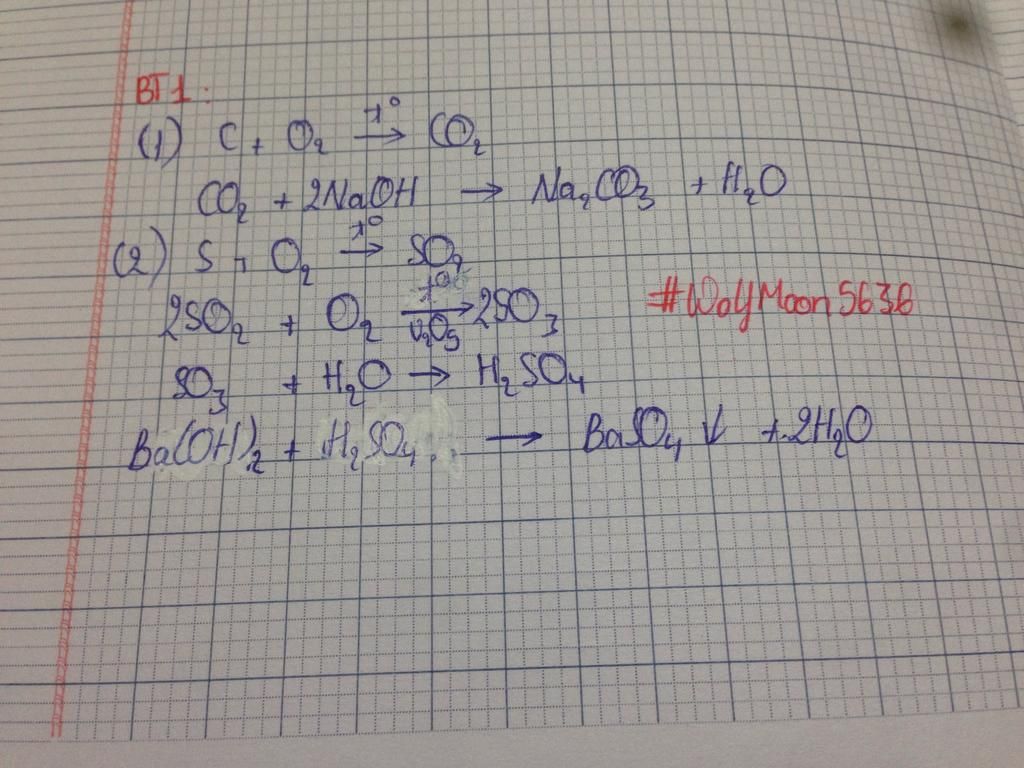 BT1:
(1) C + O₂ →(t°) CO₂
CO₂ + 2NaOH → Na₂CO₃ + H₂O
(2) S + O₂ →(t°) SO₂
2SO₂ + O₂ →(t°, V₂O₅) 2SO₃
#WolyMoon5636
SO₃ + H₂O → H₂SO₄
Ba(OH)₂ + H₂SO₄ → BaSO₄ ↓ + 2H₂O